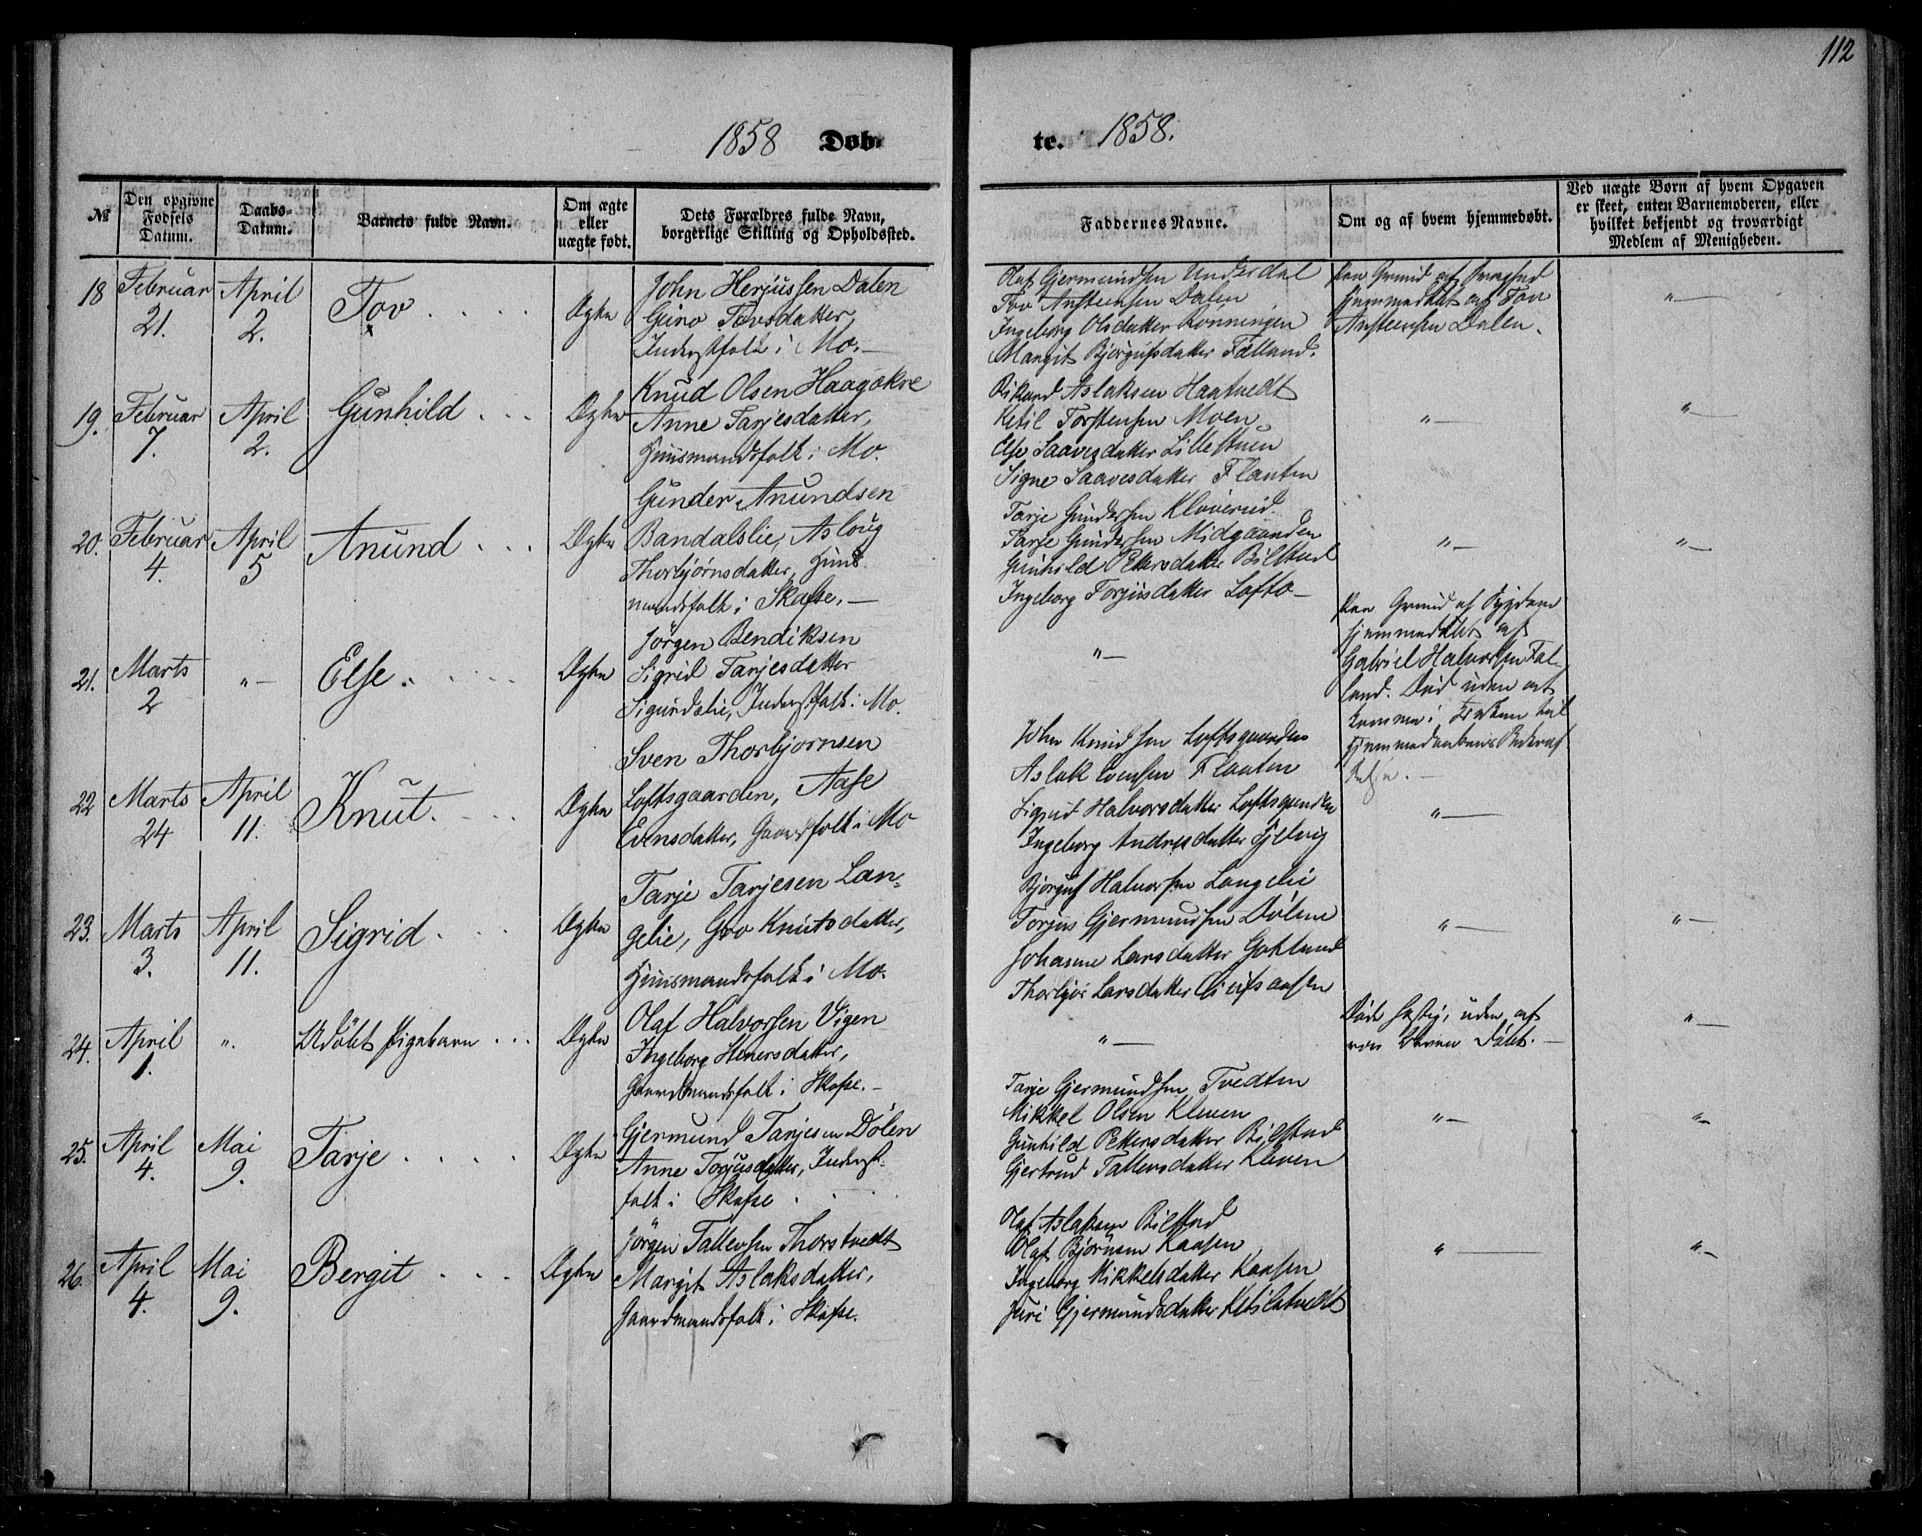 112
1858 Døb-
te. 1858.
№
Den opgivne
Fødsels
Datum.
Daabs-
Datum.
Barnets fulde Navn.
Om ægte
eller
uægte født.
Dets Forældres fulde Navn,
borgerlige Stilling og Opholdssted.
Faddernes Navne.
Om og af hvem hjemmedøbt.
Ved uægte Børn af hvem Opgaven
er skeet, enten Barnemoderen, eller
hvilket bekjendt og troværdigt
Medlem af Menigheden.
18
Februar
21.
April
2.
Tov
Ægte
John Herjussen Dalen
Gino Tovsdatter,
Inderstfolk i Mo.—
Olaf Gjermundsen Underdal
Tov Anstensen Dalen
Ingeborg Olsdatter Rønningen
Margit Bjørgufsdatter Fælland.
Paa Grund af Svaghed
hjemmedøbt af Tov
Anstensen Dalen.
"—
19.
Februar
7.
April
2.
Gunhild
Ægte
Knud Olsen Haagakre
Anne Tarjesdatter,
Huusmandsfolk i Mo.
Rikard Aslaksen Haatvedt
Ketil Torstensen Moen
Else Saavesdatter Lillestuen
Signe Saavesdatter Flauten
"—
"—
20.
Februar
4.
April
5
Anund
Ægte
Gunder Anundsen
Bandalslie, Asloug
Thorbjørnsdatter, Huus-
mandsfolk i Skafse,—
Tarje Gundersen Kloverud
Tarje Gundersen Midgaarden
Gunhild Pettersdatter Bilstad
Ingeborg Torjusdatter Lofto—
"—
"—
21.
Marts
2
"—
Else.
Ægte
Jørgen Bendiksen
Sigrid Tarjesdatter
Sigurdslie, Inderstfolk i Mo.
"—
Paa Grund af Sygdom
hjemmedøbt af
Gabriel Halvorsen Fæl-
land. Død uden at
komme i Kirken til
Hjemmedaabens Bekræf-
telse.—
22
Marts
24
April
11.
Knut.
Ægte
Sven Thorbjornsen
Loftsgaarden, Aase
Evensdatter, Gaardfolk i Mo
John Knudsen Loftsgaarden
Aslak Evensen Flauten
Sigrid Halvorsdatter Loftsgaarden
Ingeborg Andresdatter
"—
23.
Marts
3.
April
11.
Sigrid
Ægte
Tarje Tarjesen Lan-
gelie, Gro Knutsdatter,
Huusmandsfolk i Mo.
Bjørguf Halvorsen Langelie
Torjus Gjermundsen Dølene
Johanne Larsdatter Gotlund
Thorbjør Larsdatter
"—
"—
24.
April
1.
".
Udøbt Pigebarn
Ægte
Olaf Halvorsen Vigen
Ingeborg
Gaardmandsfolk i Skafse.—
"—
Døde hastig, uden at
være bleven Døbt.—
"—
25.
April
4.
Mai
9.
Tarje
Ægte
Gjermund Tarjesen Dølen
Anne Torjusdatter, Inderst-
folk i Skafse
Tarje Gjermundsen Tvedten
Mikkel Olsen Kleven
Gunhild Pettersdatter Bilstad
Gjertrud Tallevsdatter Kleven
"—
"—
26.
April
4.
Mai
9.
Bergit
Ægte
Jørgen Tallevsen Thorstvedt
Margit Aslaksdatter,
Gaardmandsfolk i Skafse.
Olaf Aslaksen Bilstad
Olaf Bjørnsen Kaasen
Ingeborg Mikkelsdatter Kaasen
Juri Gjermundsdatter Ketilstvedt
"—
"—